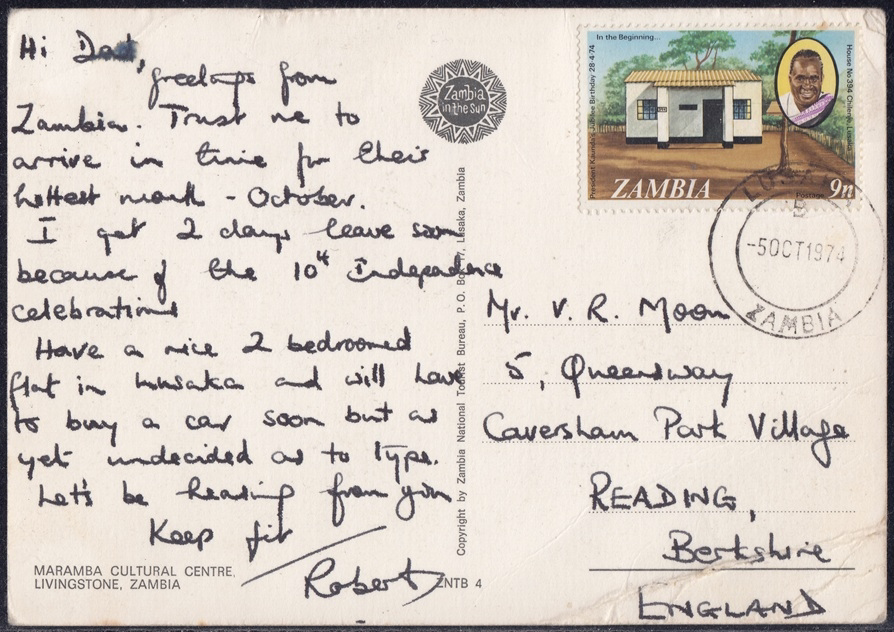 Hi Dad,
greetings from
Zambia. Trust me to
arrive in time for their
hottest month - October.
I get 2 days leave soon
because of the 10th Independence
celebrations
Have a nice 2 bedroomed
flat in Lusaka and will have
to buy a car soon but as
yet undecided as to type.
Let's be hearing from you
Keep fit
Robert
MARAMBA CULTURAL CENTRE,
LIVINGSTONE, ZAMBIA
ZNTB 4
Zambia
in the sun
Copyright by Zambia National Tourist Bureau, P.O. Box 17, Lusaka, Zambia
In the Beginning...
President Kaunda's Jubilee Birthday 28·4·74
House No 394 Chilenje, Lusaka
ZAMBIA
Postage
9n
LUSAKA
B
-5 OCT 1974
ZAMBIA
Mr. V. R. Moon
5, Queensway
Caversham Park Village
READING,
Berkshire
ENGLAND